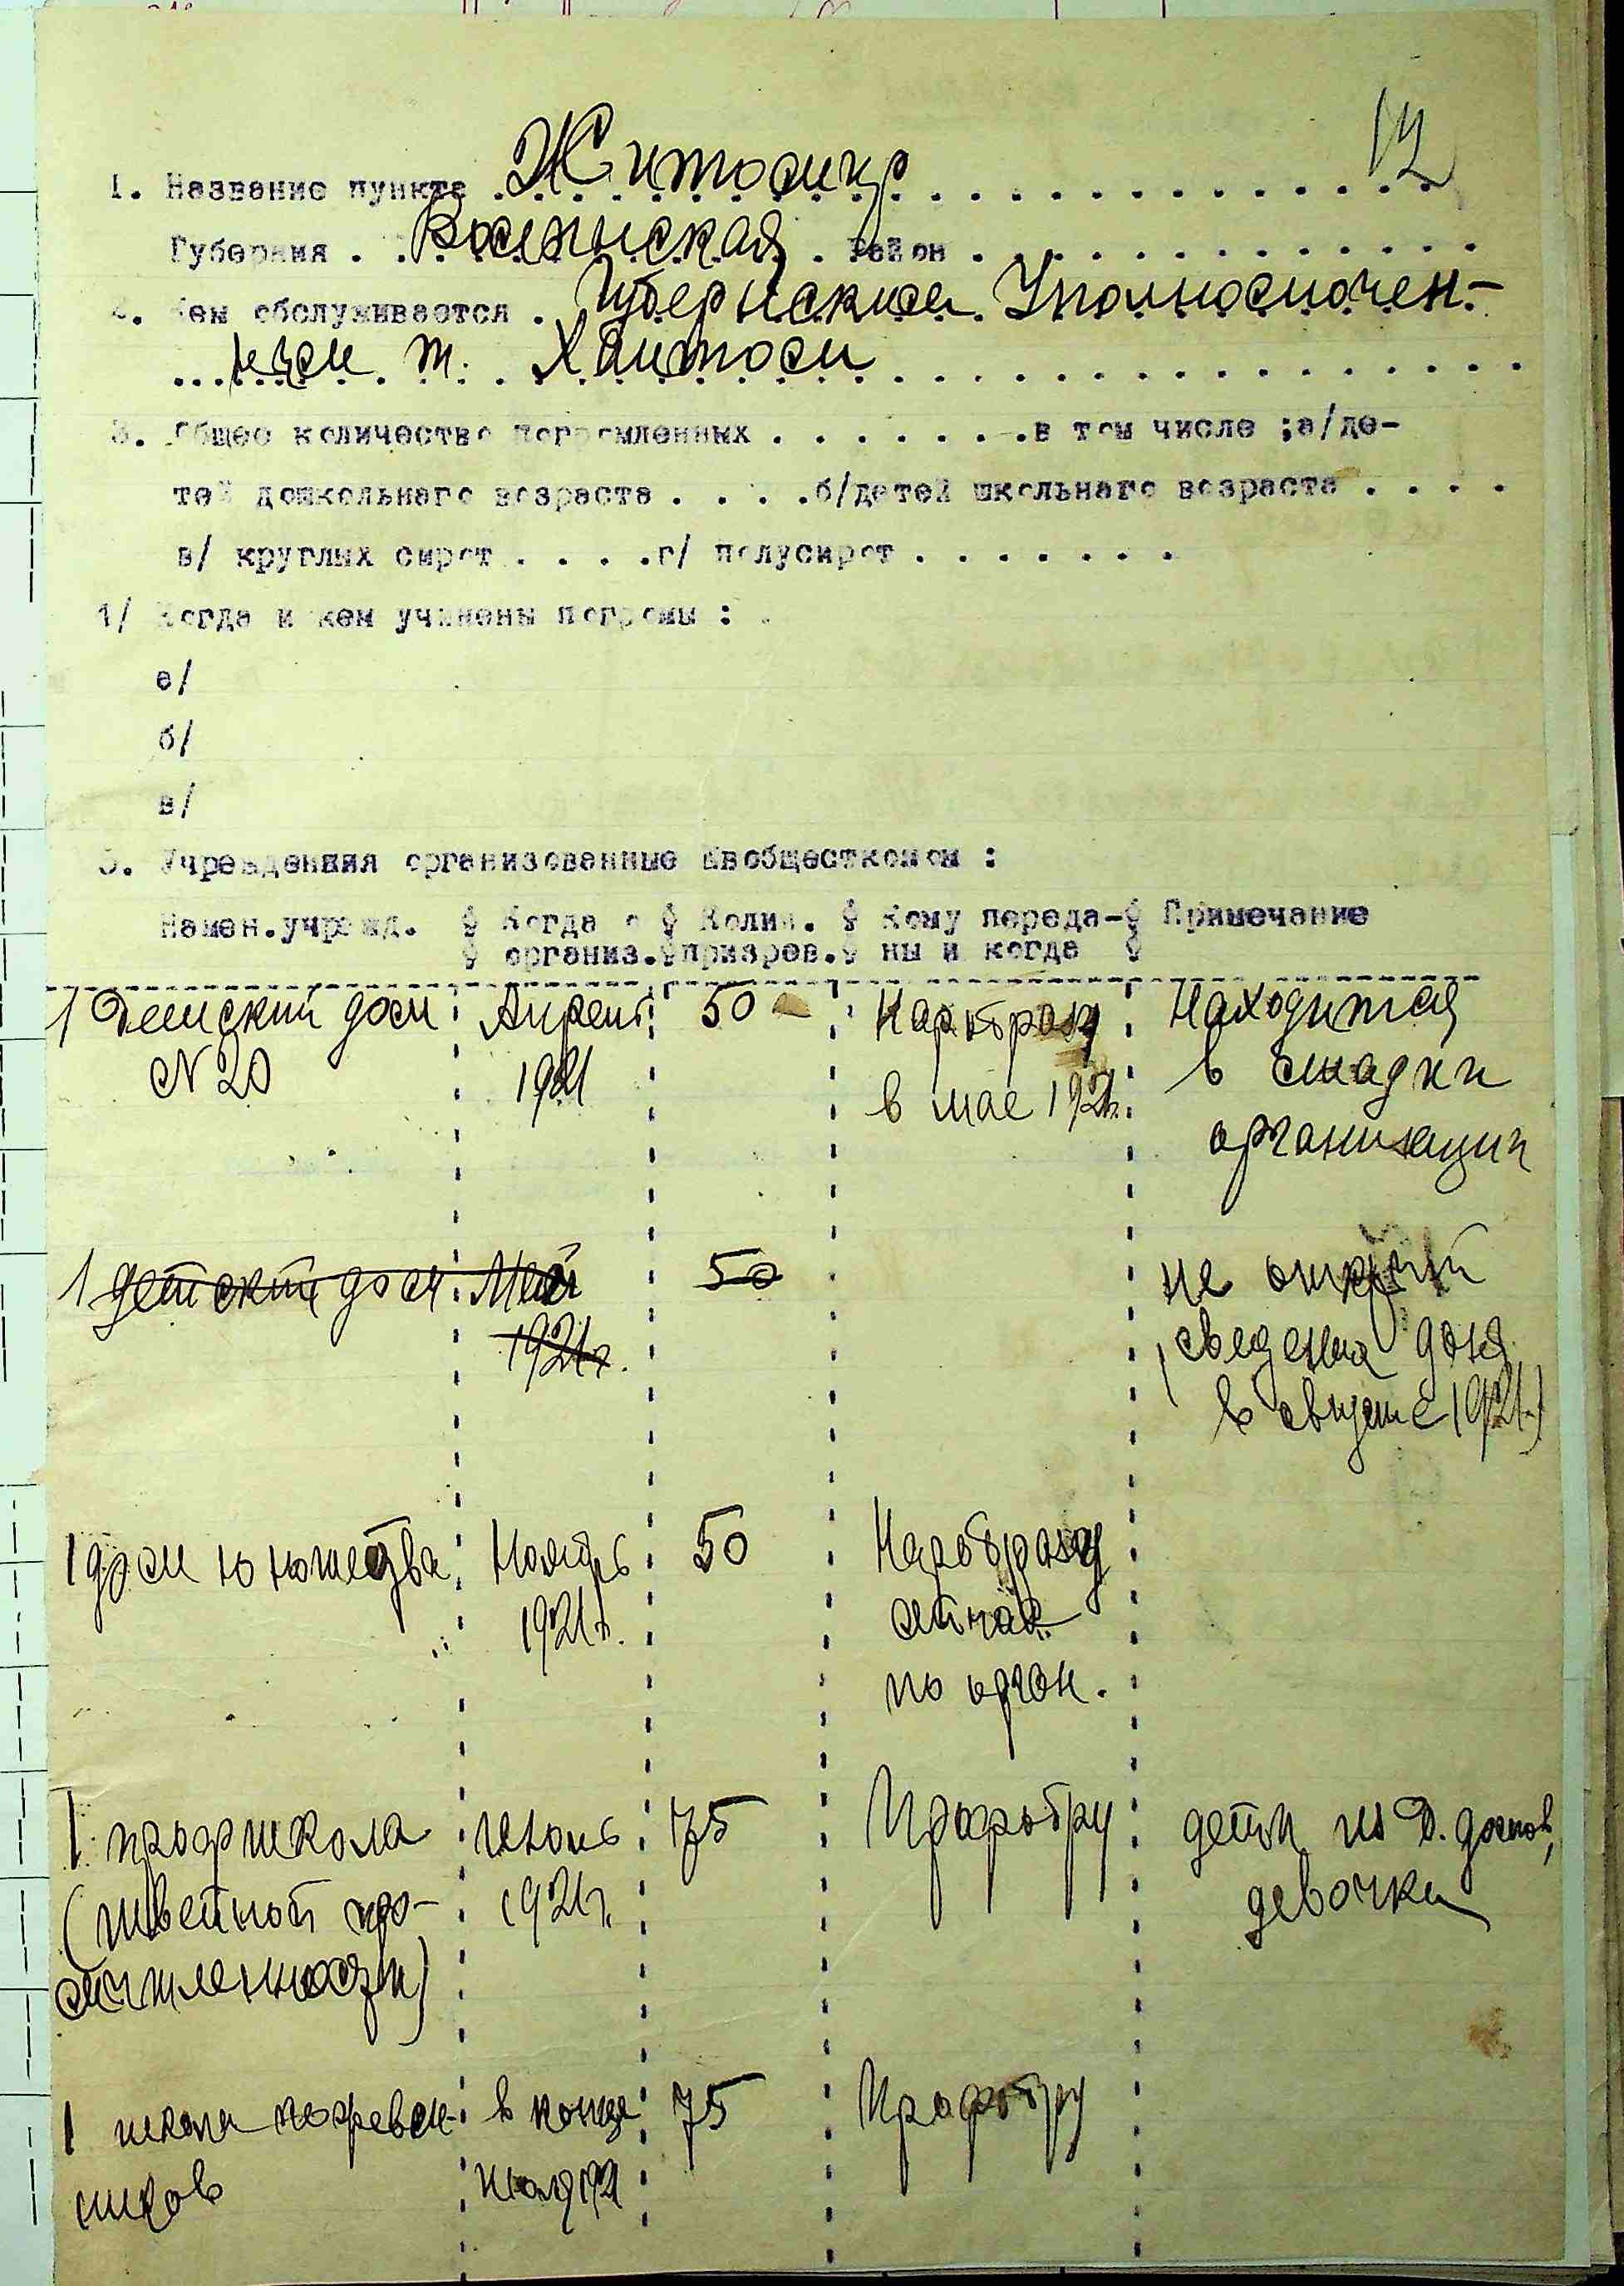 12
1. Название пункта . Житомир . . . . . . . . . . . .
Губерния . . Волынская . Район . . . . . . . . . . . . .
2. Кем обслуживается . Губернским Уполномочен-
. . . ным т. Хаитом . . . . . . . . . . . . . . . .
3. Общее количество погромленных . . . . . . . .в том числе ;а/де-
тей дошкольнаго возраста . . . . .б/детей школьнаго возраста . . . .
в/ круглых сирот . . . .г/ полусирот . . . . . . .
1/ Когда и кем учинены погромы : .
а/
б/
в/
5. Учреждениия организованные Евобщесткомом :
Наимен.учрежд. Когда о Колич. Кому переда- Примечание
организ. призрев. ны и когда
1 Детский дом Апрель 50 Наробразу Находится
N 20 1921 в мае 1921. в стадии
организации
1 детский дом Май 50 не открытый
1921г. (сведения даны
в августе 1921)
1 дом юношества Ноябрь 50 Наробразу
1921г.
по орган.
1 профшкола Июнь 75 Профобру дети из Д. домов,
(швейной про- 1921г. девочки
мышленности)
1 школа в конце 75 Профобру
июля 1921